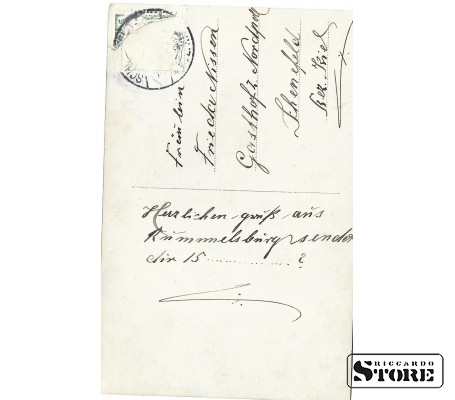 Fräulein
Friecke Nissen
Gasthof z. Nordpol
Ihenefeld
Bez. Kiel
Herzlichen gruß aus
Rummelsburg sendet
dir 15 ............ ?
RICCARDO
STORE